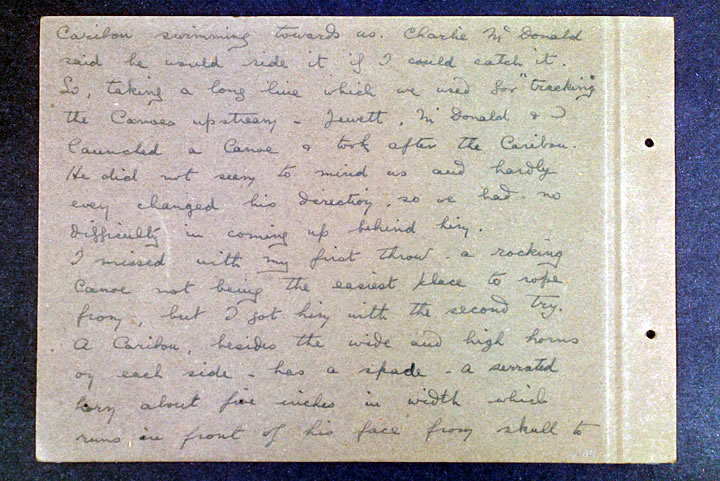 Caribou swimming towards us. Charlie McDonald
said he would ride it if I could catch it.
So, taking a long line which we used for "tracking"
the Canoes upstream - Jewett, McDonald & I
launched a Canoe & took after the Caribou.
He did not seem to mind us and hardly
even changed his direction, so we had no
difficulty in coming up behind him.
I missed with my first throw - a rocking
Canoe not being the easiest place to rope
from, but I got him with the second try.
A Caribou, besides the wide and high horns
on each side - has a spade - a serrated
horn about five inches in width which
runs in front of his face from skull to